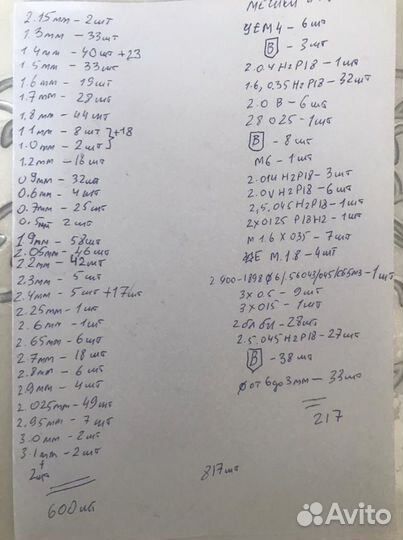 2.15мм – 2шт
1.3мм – 33шт
1.4мм – 40шт +23
1.5мм – 33шт
1.6мм – 19шт
1.7мм – 28шт
1.8мм – 44шт
1.1мм – 8шт }+18
1.0мм – 2шт
1.2мм – 18шт
0.9мм – 32шт
0.6мм – 4шт
0.7мм – 25шт
0.5мм 2шт
1.9мм – 58шт
2.05мм – 46шт
2.2мм – 42шт
2.3мм – 5шт
2.4мм – 5шт +17шт
2.25мм – 1шт
2.6мм – 1шт
2.65мм – 6шт
2.7мм – 18шт
2.8мм – 6шт
2.9мм – 4шт
2.025мм – 49шт
2.95мм – 7шт
3.0мм – 2шт
3.1мм – 2шт
2шт
600шт
УЕМ4 – 6шт
В – 3шт
2.04 Н2Р18 – 1шт
1.6, 0.35 Н2Р18 – 32шт
2.0 В – 6шт
28 025 – 1шт
В – 8шт
М6 – 1шт
2.014 Н2Р18 – 3шт
2.0V Н2Р18 – 6шт
2,5,045 Н2Р18 – 1шт
2х0125 Р18Н2 – 1шт
М 1.6 х 035 – 7шт
М 1.8 – 4шт
3х0.5 – 9шт
3х015 – 1шт
28шт
2.5,045 Н2Р18 – 27шт
В – 38шт
ф от 6 до 3мм – 33шт
217
817шт
Avito